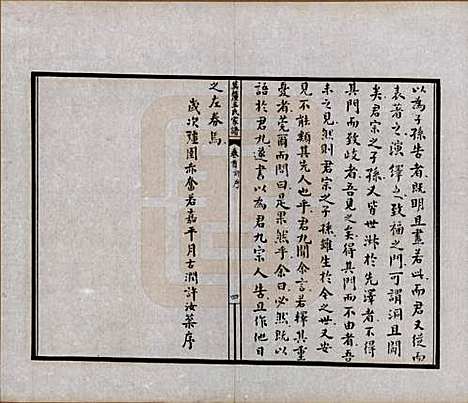 以為子孫告者既明且盡若此而君又從而
表著之演繹之致福之門可謂洞且闢
矣君宗之子孫又皆世淋於先澤者不得
其門而致歧者吾見之矣得其門而不由者吾
未之見然則君宗之子孫雖生於今之世又安
見不能類其先人也乎君九聞余言若釋其重
憂者莞爾而問曰是果然乎余曰必然既以
語於君九遂書以為君九宗人告且作他日
之左券焉
歲次彊圉赤奮若嘉平月古潤許汝棻序
王氏家譜
卷首 序
四